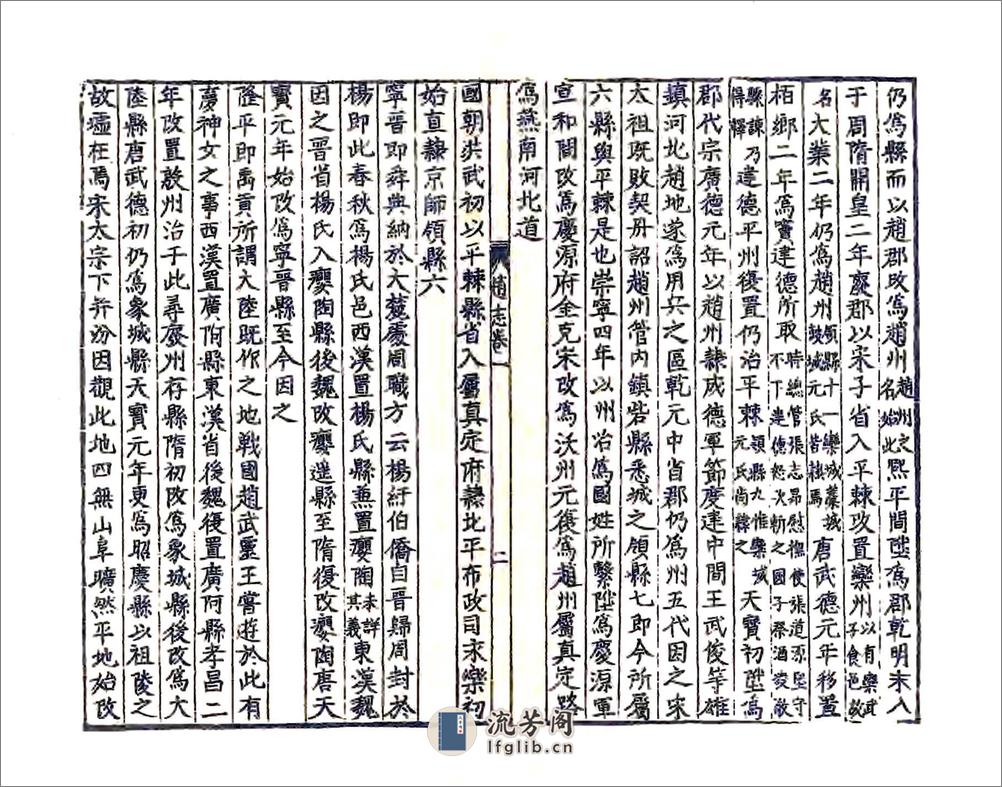 仍爲縣而以趙郡改爲趙州趙州之名始此熙平間陞爲郡乾明末入
于周隋開皇二年廢郡以宋子省入平棘改置欒州以有欒武子食邑故
名大業二年仍爲趙州領縣十一欒城藁城鼓城元氏皆棣焉唐武德元年移置
栢鄉二年爲竇建德所取時總管張志昂慰撫使張道源堅守不下建德怒欲斬之國子祭酒凌敬
縣諫乃得釋建德平州復置仍治平棘領縣九惟欒城元氏尚棣之天寶初陞爲
郡代宗廣德元年以趙州隸成德軍節度建中間王武俊等雄
鎮河北趙地遂爲用兵之區乾元中省郡仍爲州五代因之宋
太祖既敗契丹詔趙州管内鎮砦縣悉城之領縣七即今所屬
六縣與平棘是也崇寧四年以州治爲國姓所繫陞爲慶源軍
宣和間改爲慶源府金克宋改爲沃州元復爲趙州屬真定路
爲燕南河北道
趙志卷一
二
國朝洪武初以平棘縣省入屬真定府隸北平布政司永樂初
始直隸京師領縣六
寧晉即舜典納於大麓處周職方云楊紆伯僑自晉歸周封於
楊即此春秋爲楊氏邑西漢置楊氏縣兼置癭陶未詳其義東漢魏
因之晉省楊氏入癭陶縣後魏改癭遥縣至隋復改癭陶唐天
寶元年始改爲寧晉縣至今因之
隆平即禹貢所謂大陸既作之地戰國趙武靈王嘗遊於此有
夢神女之事西漢置廣阿縣東漢省後魏復置廣阿縣孝昌二
年改置殷州治于此尋廢州存縣隋初改爲象城縣後改爲大
陸縣唐武德初仍爲象城縣天寶元年更爲昭慶縣以祖陵之
故墟在焉宋太宗下并汾因觀此地四無山阜曠然平地始改
流芳阁
lfglib.cn